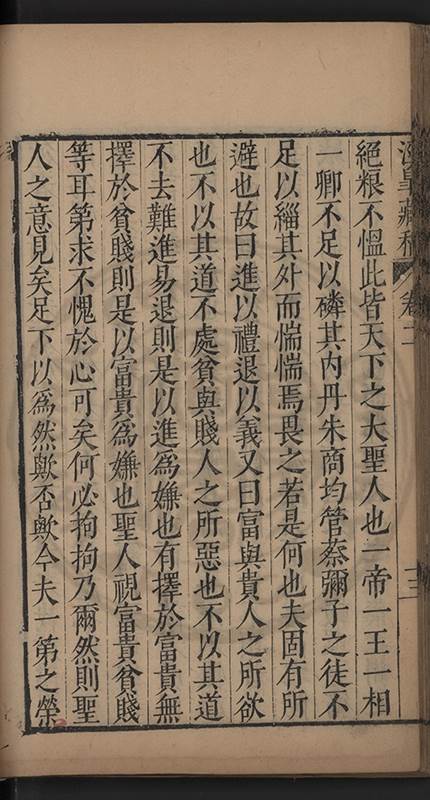 卷二
絕粮不慍此皆天下之大聖人也一帝一王一相
一卿不足以磷其内丹朱商均管蔡彌子之徒不
足以緇其外而惴惴焉畏之若是何也夫固有所
避也故曰進以禮退以義又曰富與貴人之所欲
也不以其道不處貧與賤人之所惡也不以其道
不去難進易退則是以進為嫌也有擇於富貴無
擇於貧賤則是以富貴為嫌也聖人視富貴貧賤
等耳第求不愧於心可矣何必拘拘乃爾然則聖
人之意見矣足下以為然歟否歟今夫一第之榮